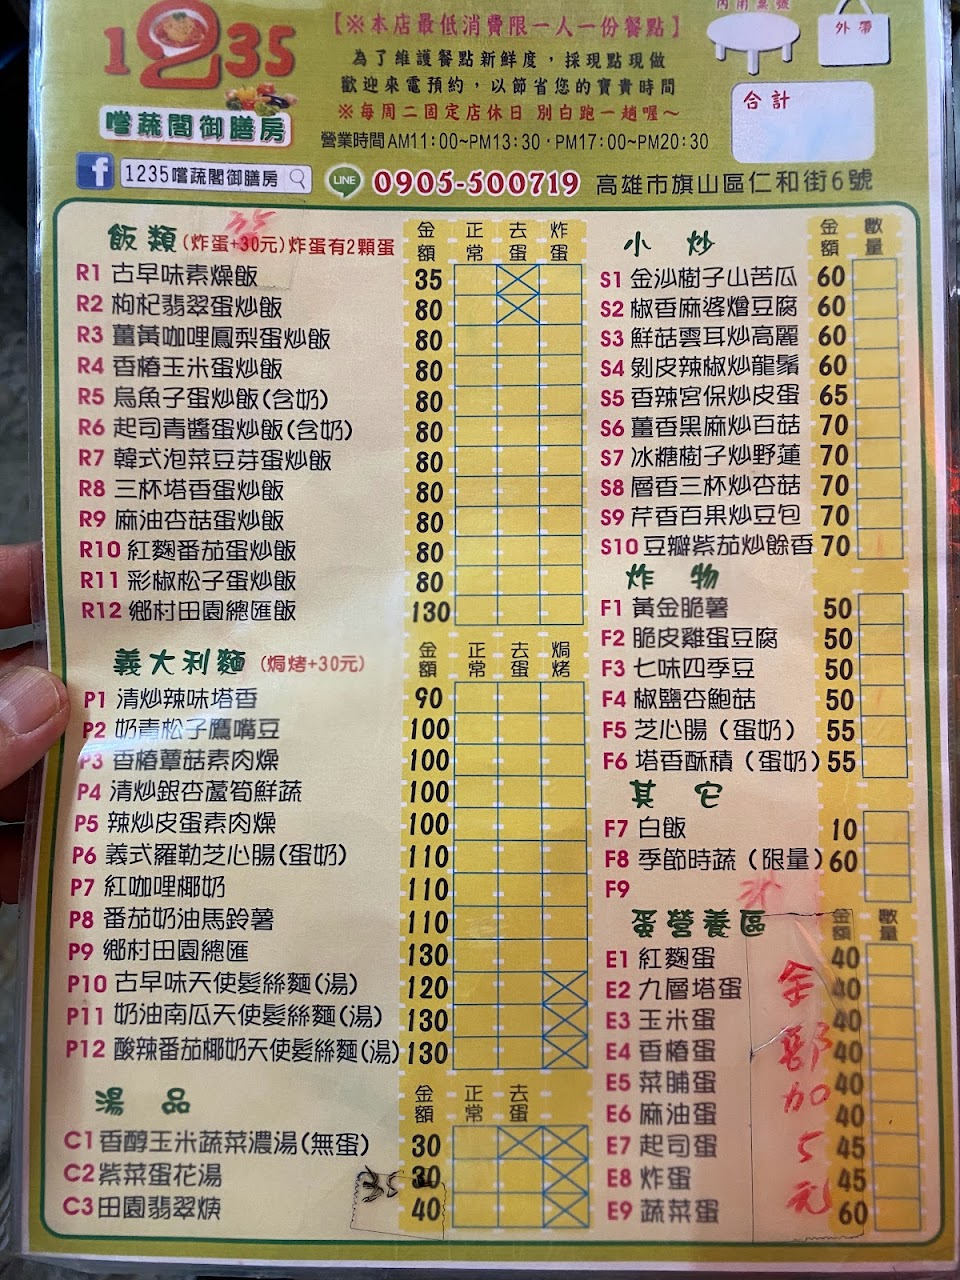 1235
嚐蔬閣御膳房
【※本店最低消費限一人一份餐點】
為了維護餐點新鮮度，採現點現做
歡迎來電預約，以節省您的寶貴時間
※每周二固定店休日 別白跑一趟喔～
營業時間AM11:00~PM13:30·PM17:00~PM20:30
內用桌號
外帶
合計
f 1235嚐蔬閣御膳房
LINE 0905-500719 高雄市旗山區仁和街6號
飯類(炸蛋+30元)炸蛋有2顆蛋 金額 正常 去蛋 炸蛋
35
R1 古早味素燥飯 35
R2 枸杞翡翠蛋炒飯 80
R3 薑黃咖哩鳳梨蛋炒飯 80
R4 香椿玉米蛋炒飯 80
R5 烏魚子蛋炒飯(含奶) 80
R6 起司青醬蛋炒飯(含奶) 80
R7 韓式泡菜豆芽蛋炒飯 80
R8 三杯塔香蛋炒飯 80
R9 麻油杏菇蛋炒飯 80
R10 紅麴番茄蛋炒飯 80
R11 彩椒松子蛋炒飯 80
R12 鄉村田園總匯飯 130
義大利麵(焗烤+30元) 金額 正常 去蛋 焗烤
P1 清炒辣味塔香 90
P2 奶青松子鷹嘴豆 100
P3 香椿蕈菇素肉燥 100
P4 清炒銀杏蘆筍鮮蔬 100
P5 辣炒皮蛋素肉燥 100
P6 義式羅勒芝心腸(蛋奶) 110
P7 紅咖哩椰奶 110
P8 番茄奶油馬鈴薯 110
P9 鄉村田園總匯 130
P10 古早味天使髮絲麵(湯) 120
P11 奶油南瓜天使髮絲麵(湯) 130
P12 酸辣番茄椰奶天使髮絲麵(湯) 130
湯品 金額 正常 去蛋
C1 香醇玉米蔬菜濃湯(無蛋) 30
C2 紫菜蛋花湯 35 30
C3 田園翡翠羹 40
小炒 金額 數量
S1 金沙樹子山苦瓜 60
S2 椒香麻婆燴豆腐 60
S3 鮮菇雲耳炒高麗 60
S4 剝皮辣椒炒龍鬚 60
S5 香辣宮保炒皮蛋 65
S6 薑香黑麻炒百菇 70
S7 冰糖樹子炒野蓮 70
S8 層香三杯炒杏菇 70
S9 芹香百果炒豆包 70
S10 豆瓣紫茄炒餘香 70
炸物
F1 黃金脆薯 50
F2 脆皮雞蛋豆腐 50
F3 七味四季豆 50
F4 椒鹽杏鮑菇 50
F5 芝心腸（蛋奶） 55
F6 塔香酥積（蛋奶） 55
其它
F7 白飯 10
F8 季節時蔬（限量） 60
F9
蛋營養區 金額 數量
E1 紅麴蛋 40
E2 九層塔蛋 40
E3 玉米蛋 40
E4 香椿蛋 40
E5 菜脯蛋 40
E6 麻油蛋 40
E7 起司蛋 45
E8 炸蛋 45
E9 蔬菜蛋 60
全部加5元